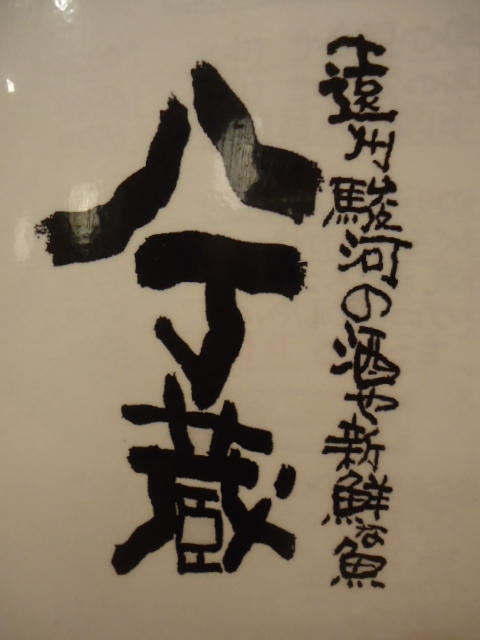 遠州駿河の酒や新鮮な魚
八丁蔵